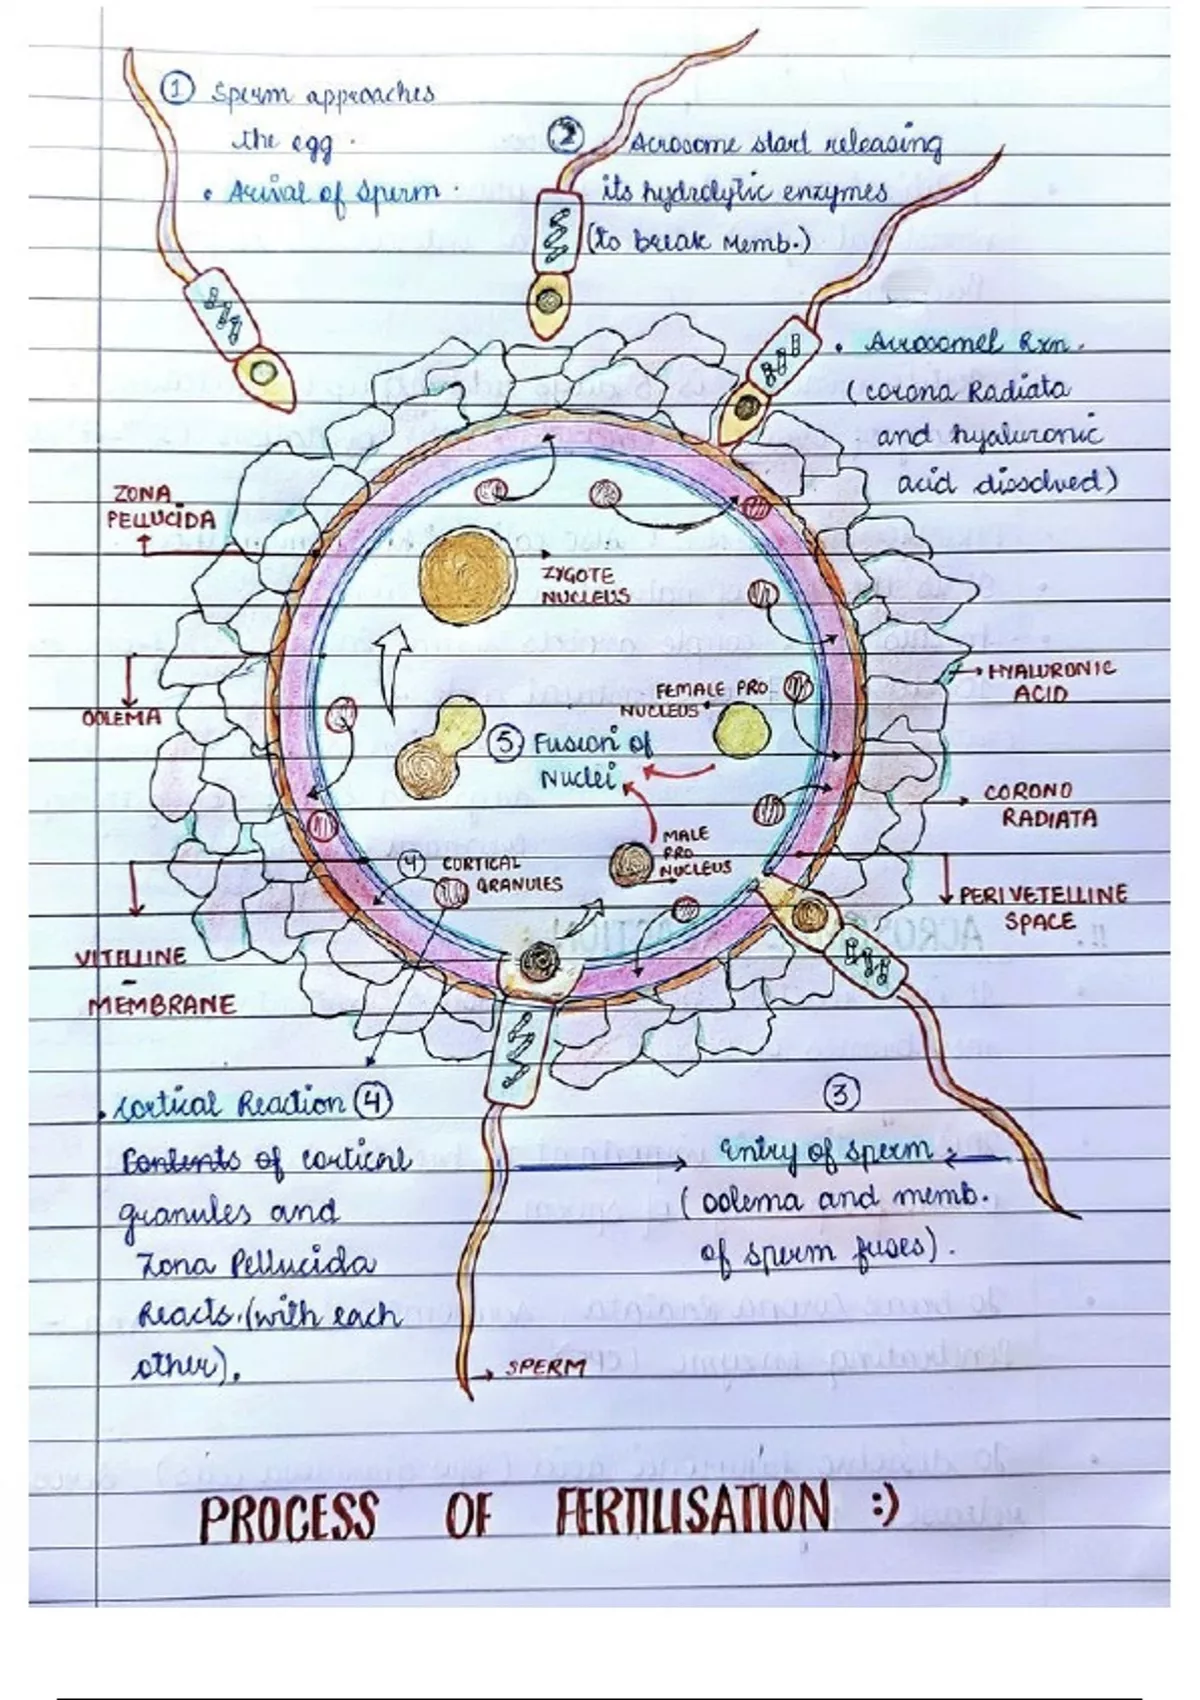 ① Sperm approaches
the egg.
• Arival of sperm.
② Acrosome start releasing
its hydrolytic enzymes
(to break Memb.)
• Acrosomel Rxn.
(corona Radiata
and hyaluronic
acid dissolved)
ZONA
PELLUCIDA
ZYGOTE
NUCLEUS
OOLEMA
HYALURONIC
ACID
FEMALE PRO
NUCLEUS
⑤ Fusion of
Nuclei
CORONO
RADIATA
MALE
PRO
NUCLEUS
④ CORTICAL
GRANULES
PERIVETELLINE
SPACE
VITELLINE
MEMBRANE
• Cortical Reaction ④
Contents of cortical
granules and
Zona Pellucida
Reacts. (with each
other).
③
Entry of sperm.
(oolema and memb.
of sperm fuses).
SPERM
PROCESS OF FERTILISATION :)